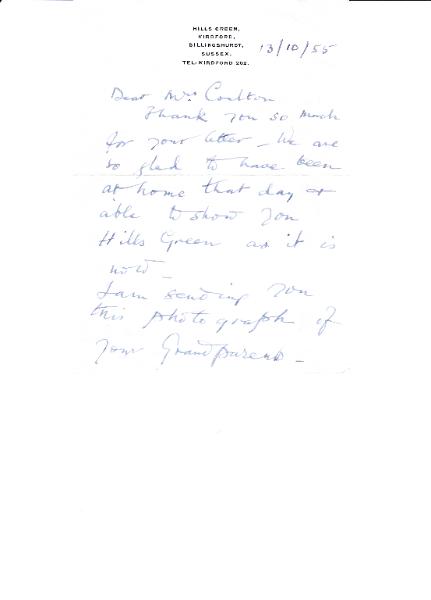 HILLS GREEN,
KIRDFORD,
BILLINGSHURST,
SUSSEX.
TEL: KIRDFORD 202.
13/10/55
Dear Mrs Coulton
Thank you so much
for your letter - We are
so glad to have been
at home that day &
able to show you
Hills Green as it is
now -
I am sending you
this photograph of
your Grandparents -